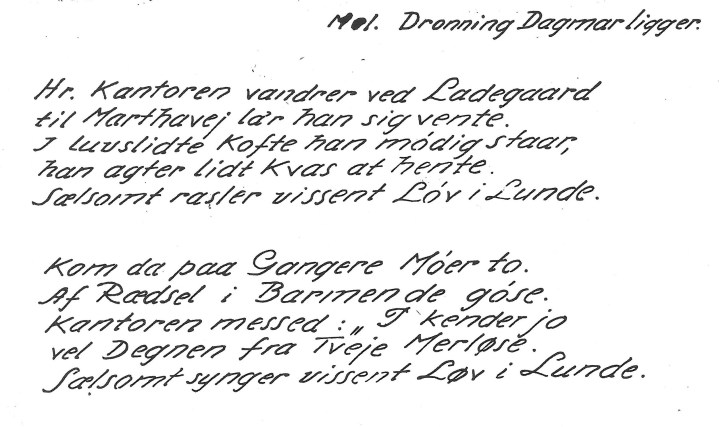 Mel. Dronning Dagmar ligger.
Hr. Kantoren vandrer ved Ladegaard
til Marthavej lar han sig vente.
I luvslidte Kofte han módig staar,
han agter lidt Kvas at hente.
Sælsomt rasler vissent Lóv i Lunde.
Kom da paa Gangere Móer to.
Af Rædsel i Barmen de góse.
Kantoren messed : „ I kender jo
vel Degnen fra Tveje Merløse.
Sælsomt synger vissent Løv i Lunde.